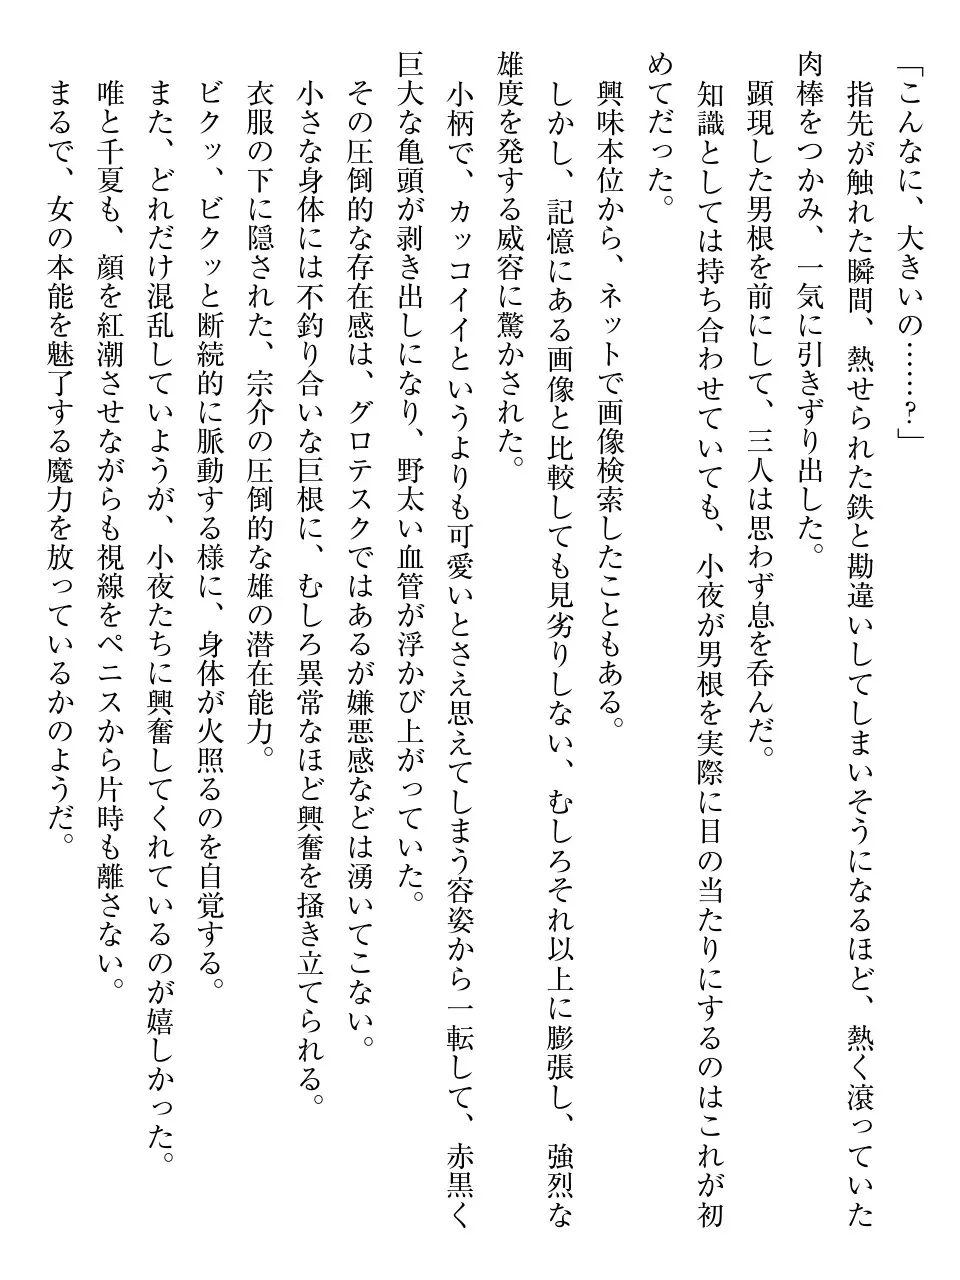 「こんなに、大きいの……？」
指先が触れた瞬間、熱せられた鉄と勘違いしてしまいそうになるほど、熱く滾っていた
肉棒をつかみ、一気に引きずり出した。
顕現した男根を前にして、三人は思わず息を呑んだ。
知識としては持ち合わせていても、小夜が男根を実際に目の当たりにするのはこれが初
めてだった。
興味本位から、ネットで画像検索したこともある。
しかし、記憶にある画像と比較しても見劣りしない、むしろそれ以上に膨張し、強烈な
雄度を発する威容に驚かされた。
小柄で、カッコイイというよりも可愛いとさえ思えてしまう容姿から一転して、赤黒く
巨大な亀頭が剥き出しになり、野太い血管が浮かび上がっていた。
その圧倒的な存在感は、グロテスクではあるが嫌悪感などは湧いてこない。
小さな身体には不釣り合いな巨根に、むしろ異常なほど興奮を掻き立てられる。
衣服の下に隠された、宗介の圧倒的な雄の潜在能力。
ビクッ、ビクッと断続的に脈動する様に、身体が火照るのを自覚する。
また、どれだけ混乱していようが、小夜たちに興奮してくれているのが嬉しかった。
唯と千夏も、顔を紅潮させながらも視線をペニスから片時も離さない。
まるで、女の本能を魅了する魔力を放っているかのようだ。